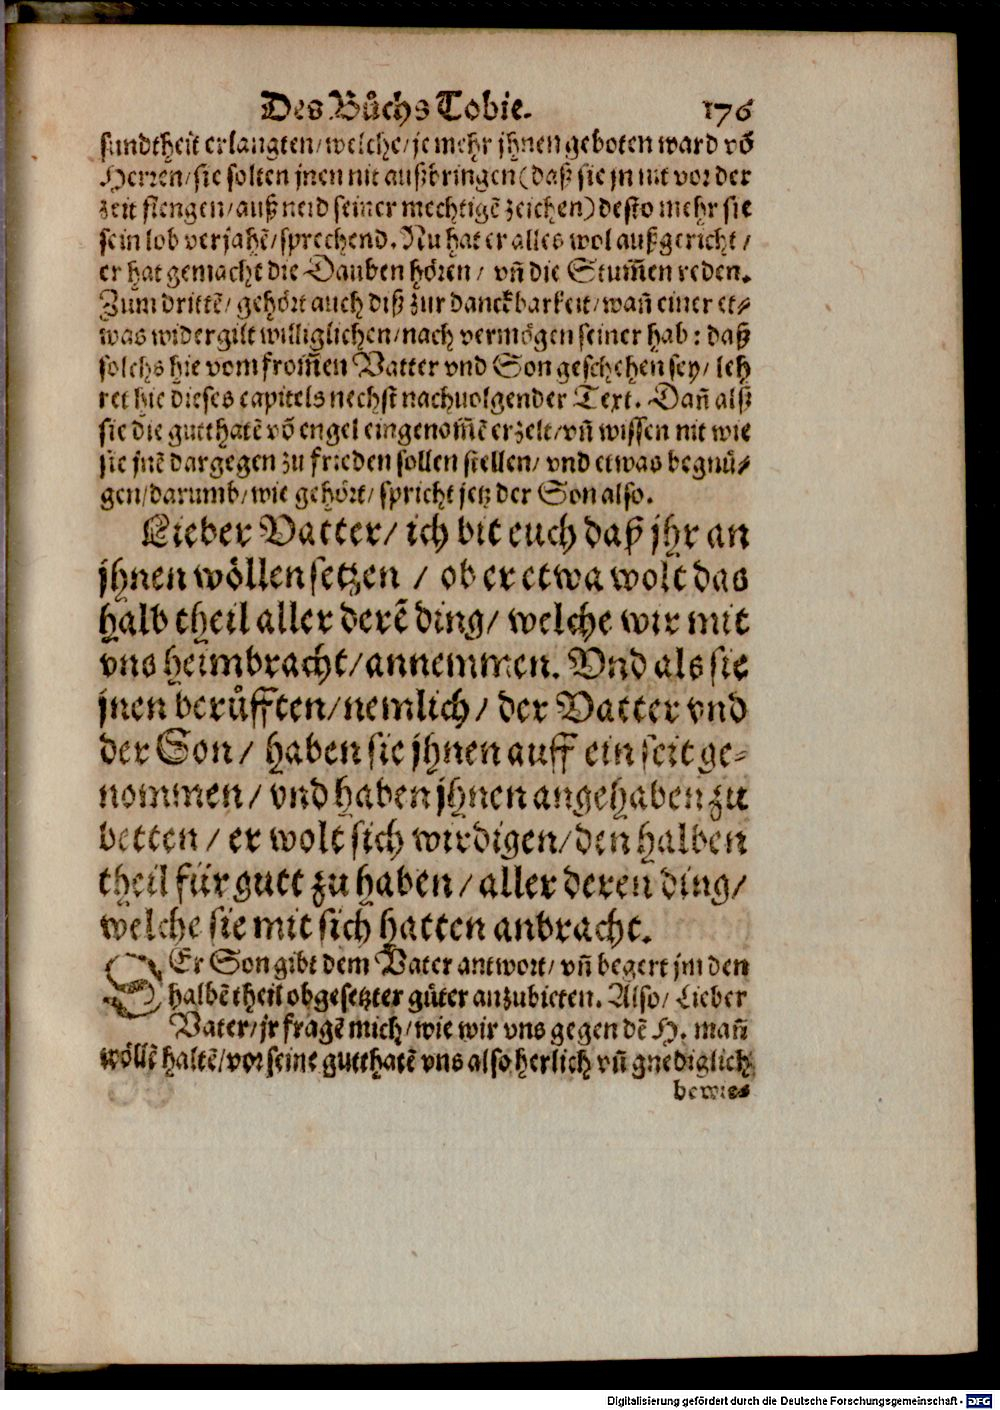 Des Bůchs Tobie. 176
sundtheit erlangten/welche/je mehr jhnen geboten ward võ
Herren/sie solten jnen nit außbringen(daß sie jn nit vor der
zeit fiengen/auß neid seiner mechtigẽ zeichen) desto mehr sie
sein lob verjahẽ/sprechend. Nu hat er alles wol außgericht/
er hat gemacht die Dauben hören/ vñ die Stum̃en reden.
Zum drittẽ/ gehört auch diß zur danckbarkeit/wañ einer et⸗
was widergilt williglichen/nach vermögen seiner hab: daß
solchs hie vom from̃en Vatter vnd Son geschehen sey/ leh
ret hie dieses capitels nechst nachuolgender Text. Dañ alß
sie die gutthatẽ võ engel eingenom̃ẽ erzelt/vñ wissen nit wie
sie jnẽ dargegen zu frieden sollen stellen/ vnd etwas begnü⸗
gen/darumb/wie gehört/ spricht jetz der Son also.
Lieber Vatter/ ich bit euch daß jhr an
jhnen wöllen setzen / ob er etwa wolt das
halb theil aller derẽ ding/ welche wir mit
vns heimbracht/annemmen. Vnd als sie
jnen berůfften/nemlich/ der Vatter vnd
der Son/ haben sie jhnen auff ein seit ge⸗
nommen/ vnd haben jhnen angehaben zu
betten/ er wolt sich wirdigen/den halben
theil für gutt zu haben/ aller deren ding/
welche sie mit sich hatten anbracht.
DEr Son gibt dem Vater antwort/ vñ begert jm den
halbẽ theil obgesetzter gůter anzubieten. Also/ Lieber
Vater/jr fragẽ mich/wie wir vns gegen dẽ H. mañ
wöllẽ haltẽ/vor seine gutthatẽ vns also herlich vñ gnediglich
bewies
Digitalisierung gefördert durch die Deutsche Forschungsgemeinschaft - DFG